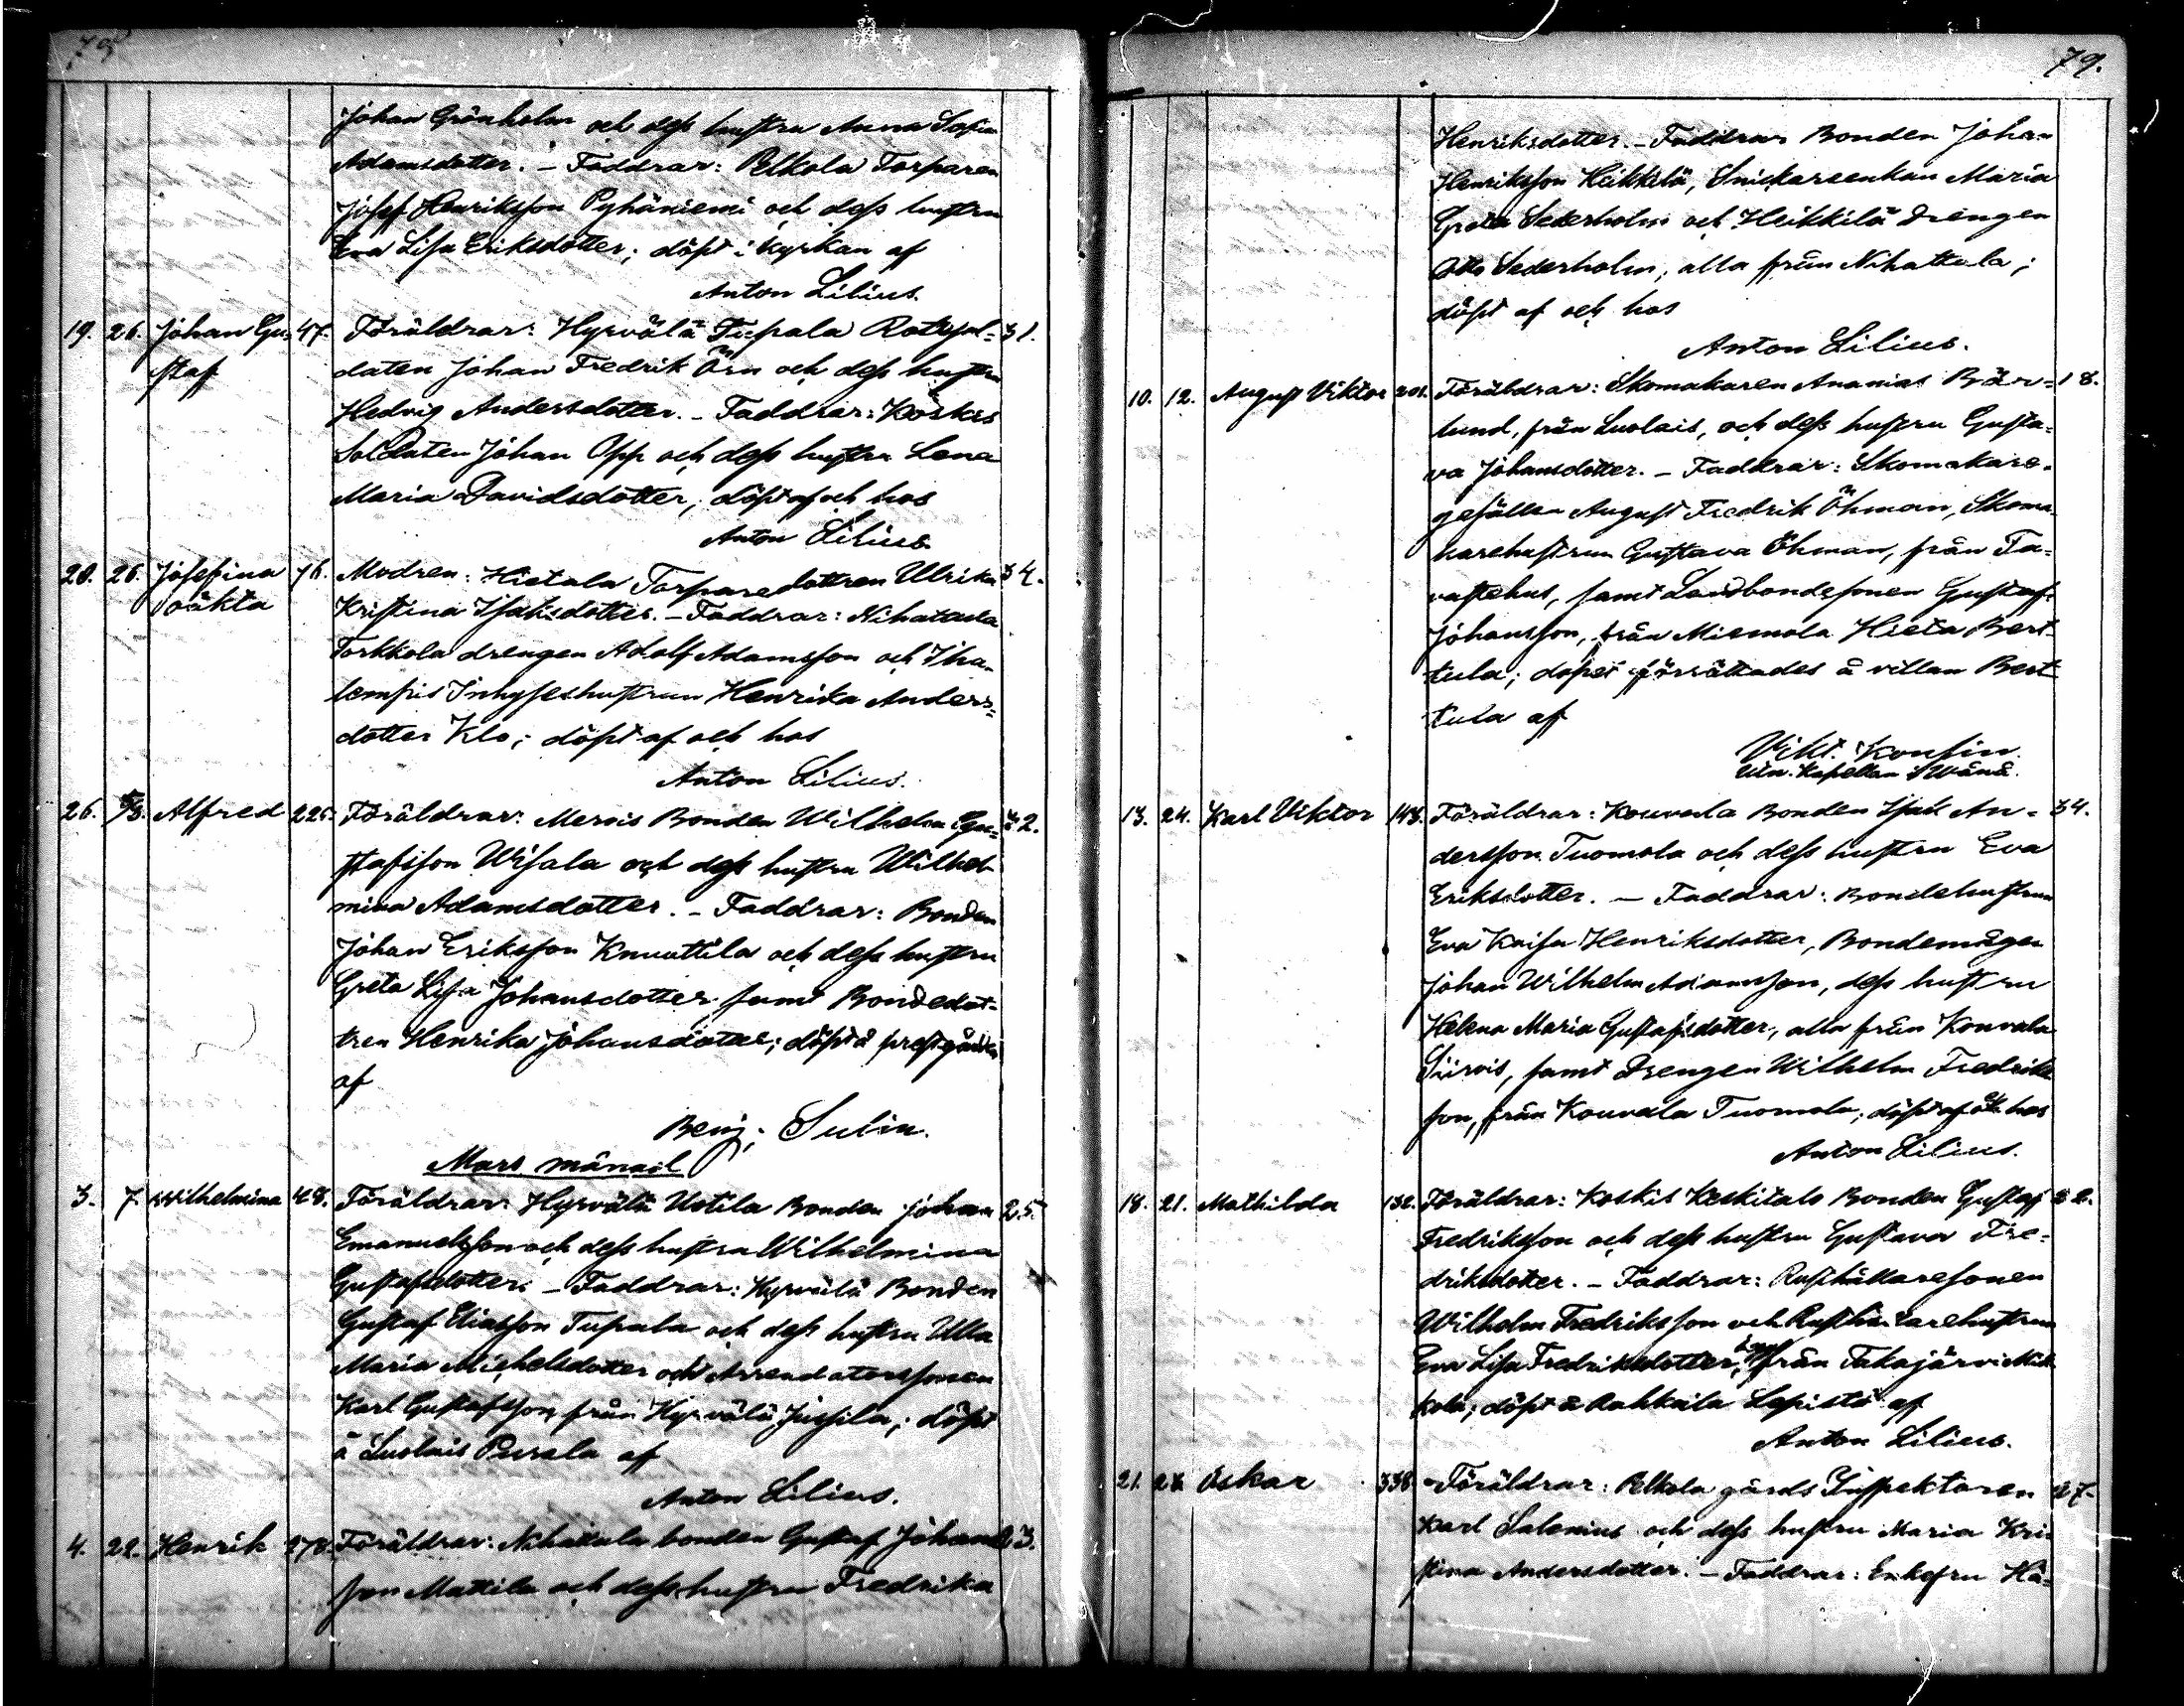 79.
Johan Grönholm och dess hustru Anna Sofia
Adamsdotter. – Faddrar: Pelkola Torparen
Josef Henriksson Pyhäniemi och dess hustru
Eva Lisa Eriksdotter; döpt i kyrkan af
Anton Lilius.
19. 26. Johan Gu- 47. Föräldrar: Hyrvälä Tupala Rotesol- 31.
staf daten Johan Fredrik Örn och dess hustru
Hedvig Andersdotter. – Faddrar: Koskis
Soldaten Johan Opp och dess hustru Lena
Maria Davidsdotter; döpt af och hos
Anton Lilius.
20. 26. Josefina 76. Modren: Hietala Torparedottren Ulrika 34.
oäkta Kristina Isaksdotter. – Faddrar: Nihattula
Torkkola drengen Adolf Adamsson och Iha-
lempis Inhyseshustrun Henrika Anders-
dotter Klo; döpt af och hos
Anton Lilius.
26. Alfred 225. Föräldrar: Mervis Bonden Wilhelm Gu- 42.
stafsson Wisala och dess hustru Wilhel-
mina Adamsdotter. – Faddrar: Bonden
Johan Eriksson Knuuttila och dess hustru
Greta Lisa Johansdotter samt Bondedot-
tren Henrika Johansdotter; döpt å prestgården
af
Benj. Sulin.
Mars månad
3. 7. Wilhelmina 48. Föräldrar: Hyrvälä Uotila Bonden Johan 25.
Emanuelsson och dess hustru Wilhelmina
Gustafsdotter. – Faddrar: Hyrvälä Bonden
Gustaf Eliasson Tupala och dess hustru Ulla
Maria Michelsdotter och Arrendatorssonen
Karl Gustafsson från Hyrvälä Jussila; döpt
å Luolais Perala af
Anton Lilius.
4. 22. Henrik 278. Föräldrar: Nihattula bonden Gustaf Johans-
son Mattila och dess hustru Fredrika
79.
Henriksdotter. – Faddrar Bonden Johan
Henriksson Heikkilä, Snickareenkan Maria
Greta Sederholm och Heikkilä Drengen
Otto Sederholm, alla från Nihattula;
döpt af och hos
Anton Lilius.
10. 12. August Viktor 201. Föräldrar: Skomakaren Ananias Bär- 18.
lund, från Luolais, och dess hustru Gusta-
va Johansdotter. – Faddrar: Skomakare-
gesällen August Fredrik Öhman, Skoma-
karehustrun Gustava Öhman, från Ta-
vastehus, samt Landbondesonen Gustaf
Johansson, från Miemola Hieta Bert-
tula; dopet förrättades å villan Bert-
tula af
Vikt. Konsin.
Vin. Kapellan i Wånå.
13. 24. Karl Viktor 143. Föräldrar: Kouvala Bonden Isak An- 34.
dersson Tuomola och dess hustru Eva
Eriksdotter. – Faddrar: Bondehustrun
Eva Kaisa Henriksdotter, Bondemågen
Johan Wilhelm Adamsson, dess hustru
Helena Maria Gustafsdotter, alla från Kouvala
Siirois, samt Drengen Wilhelm Fredriks-
son, från Kouvala Tuomola; döpt af och hos
Anton Lilius.
18. 21. Mathilda 132. Föräldrar: Koskis Keskitalo Bonden Gustaf
Fredriksson och dess hustru Gustava Fre-
driksdotter. – Faddrar: Rusthållaresonen
Wilhelm Fredriksson och Rusthållarehustrun
Eva Lisa Fredriksdotter, från Takajärvi Mik-
kola; döpt å Rahkoila Sepistö af
Anton Lilius.
21. Oskar 338. Föräldrar: Pelkola gårds Inspektoren 27.
Karl Salenius och dess hustru Maria Kri-
stina Andersdotter. – Faddrar: Enkefru Hå-